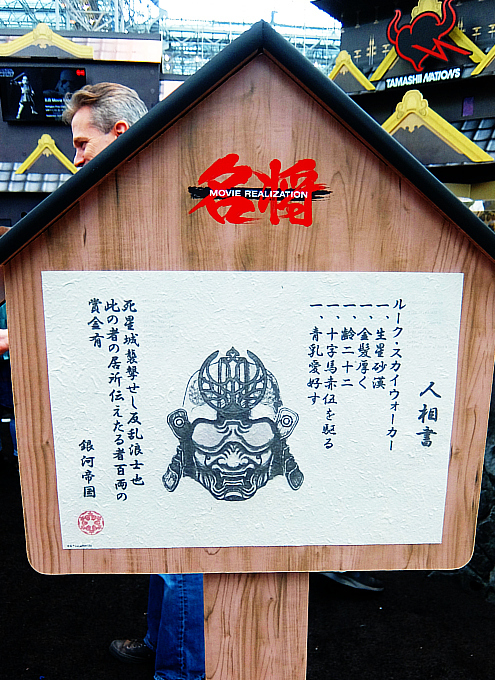 TAMASHII NATIONS
名将
MOVIE REALIZATION
人相書
ルーク・スカイウォーカー
一、生星砂漠
一、金髪厚く
一、齢二十二
一、十字馬赤伍を駆る
一、青乳愛好す
死星城襲撃せし反乱浪士也
此の者の居所伝えたる者百両の
賞金有
銀河帝国